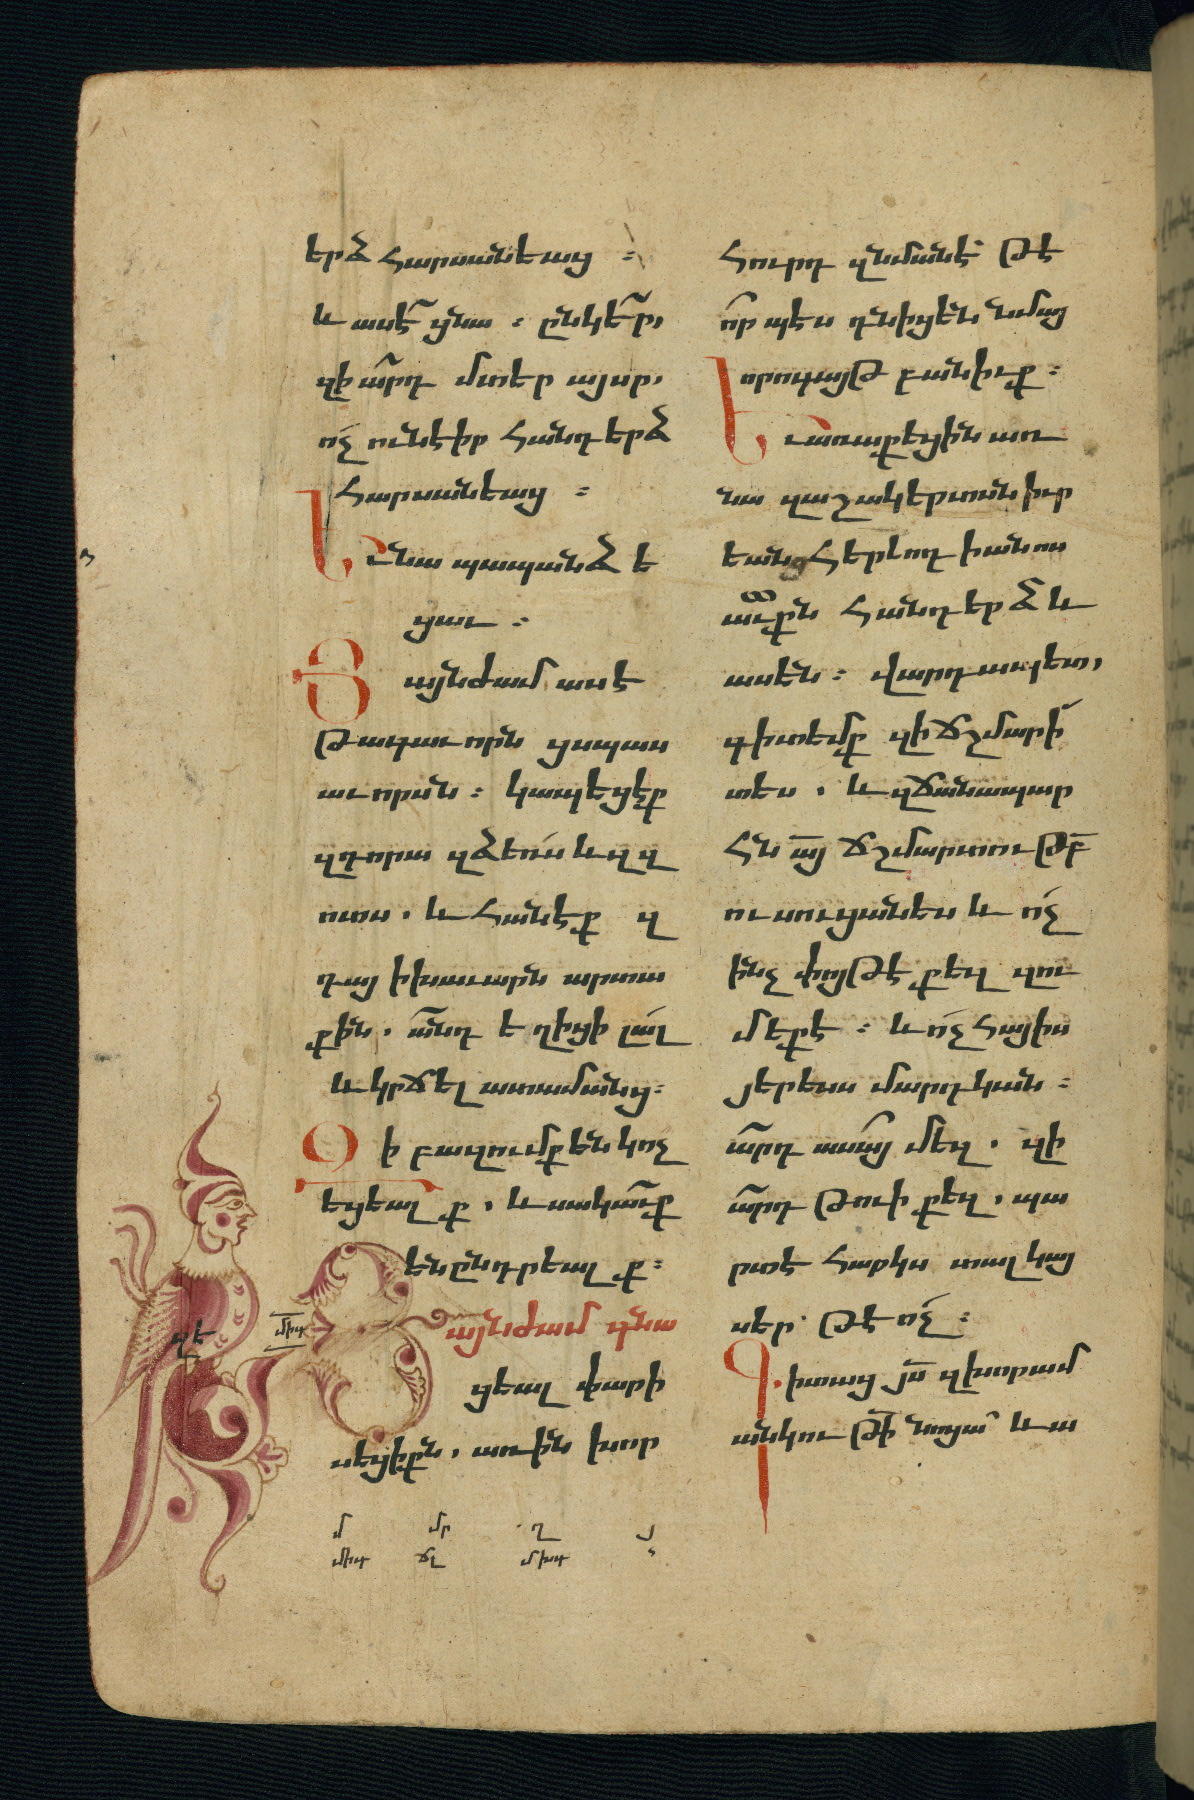 երձ հարսանեաց ։
և ասէ՞ ցնա ։ ընկե՞ր,
զի ա՞րդ մտեր այսր,
ոչ ունէիր հանդերձ
հարսանեաց ։
Եւ նա պապանձե
ցաւ ։
Յայնժամ ասէ
թագաւորն ցսպաս
աւորսն ։ կապեցէք
զդորա զձեռս և զ
ոտս . և հանէք զ
դայ ի խաւարն արտա
քին . անդ եղիցի լալ
և կրճել ատամանց ։
Զի բազումք են կոչ
եցեալք , և սակաւք
են ընտրեալք ։
Յայնժամ գնա
ցեալ փարի
սեցիքն , առին խոր
հուրդ զնմանէ թէ
որ պէս դնիցեն նմայ
որոգայթ բանիւք ։
Եւ առաքեցին առ
նա զաշակերտսն իւր
եանց հերովդիանոս
աւքն հանդերձ և
ասեն ։ վարդապետ,
գիտեմք զի ճշմարի
տես . և զճանապար
հն այ ճշմարտութբ
ուսուցանես և ոչ
ինչ փոյթ է քեզ զու
մեքէ ։ և ոչ հայիս
յերեսս մարդկան ։
արդ ասա մեզ . զի
արդ թուի քեզ . պա
րտէ հարկս տալ կայ
սեր թէ ոչ ։
Գիտաց յս զխորամ
անկութի նոցա և ա
զե
միգ
մ մր ղ յ
միգ ճլ մխգ